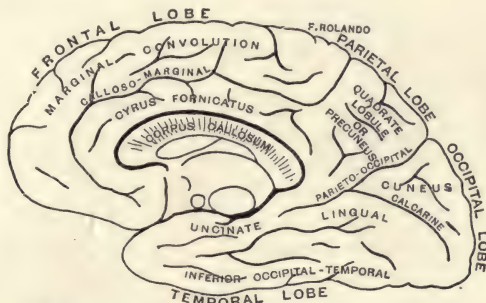 FRONTAL LOBE
F. ROLANDO
PARIETAL LOBE
MARGINAL CONVOLUTION
CALLOSO-MARGINAL
GYRUS FORNICATUS
CORPUS CALLOSUM
QUADRATE
LOBULE
OR
PRECUNEUS
PARIETO-OCCIPITAL
OCCIPITAL LOBE
CUNEUS
CALCARINE
LINGUAL
UNCINATE
INFERIOR OCCIPITAL-TEMPORAL
TEMPORAL LOBE